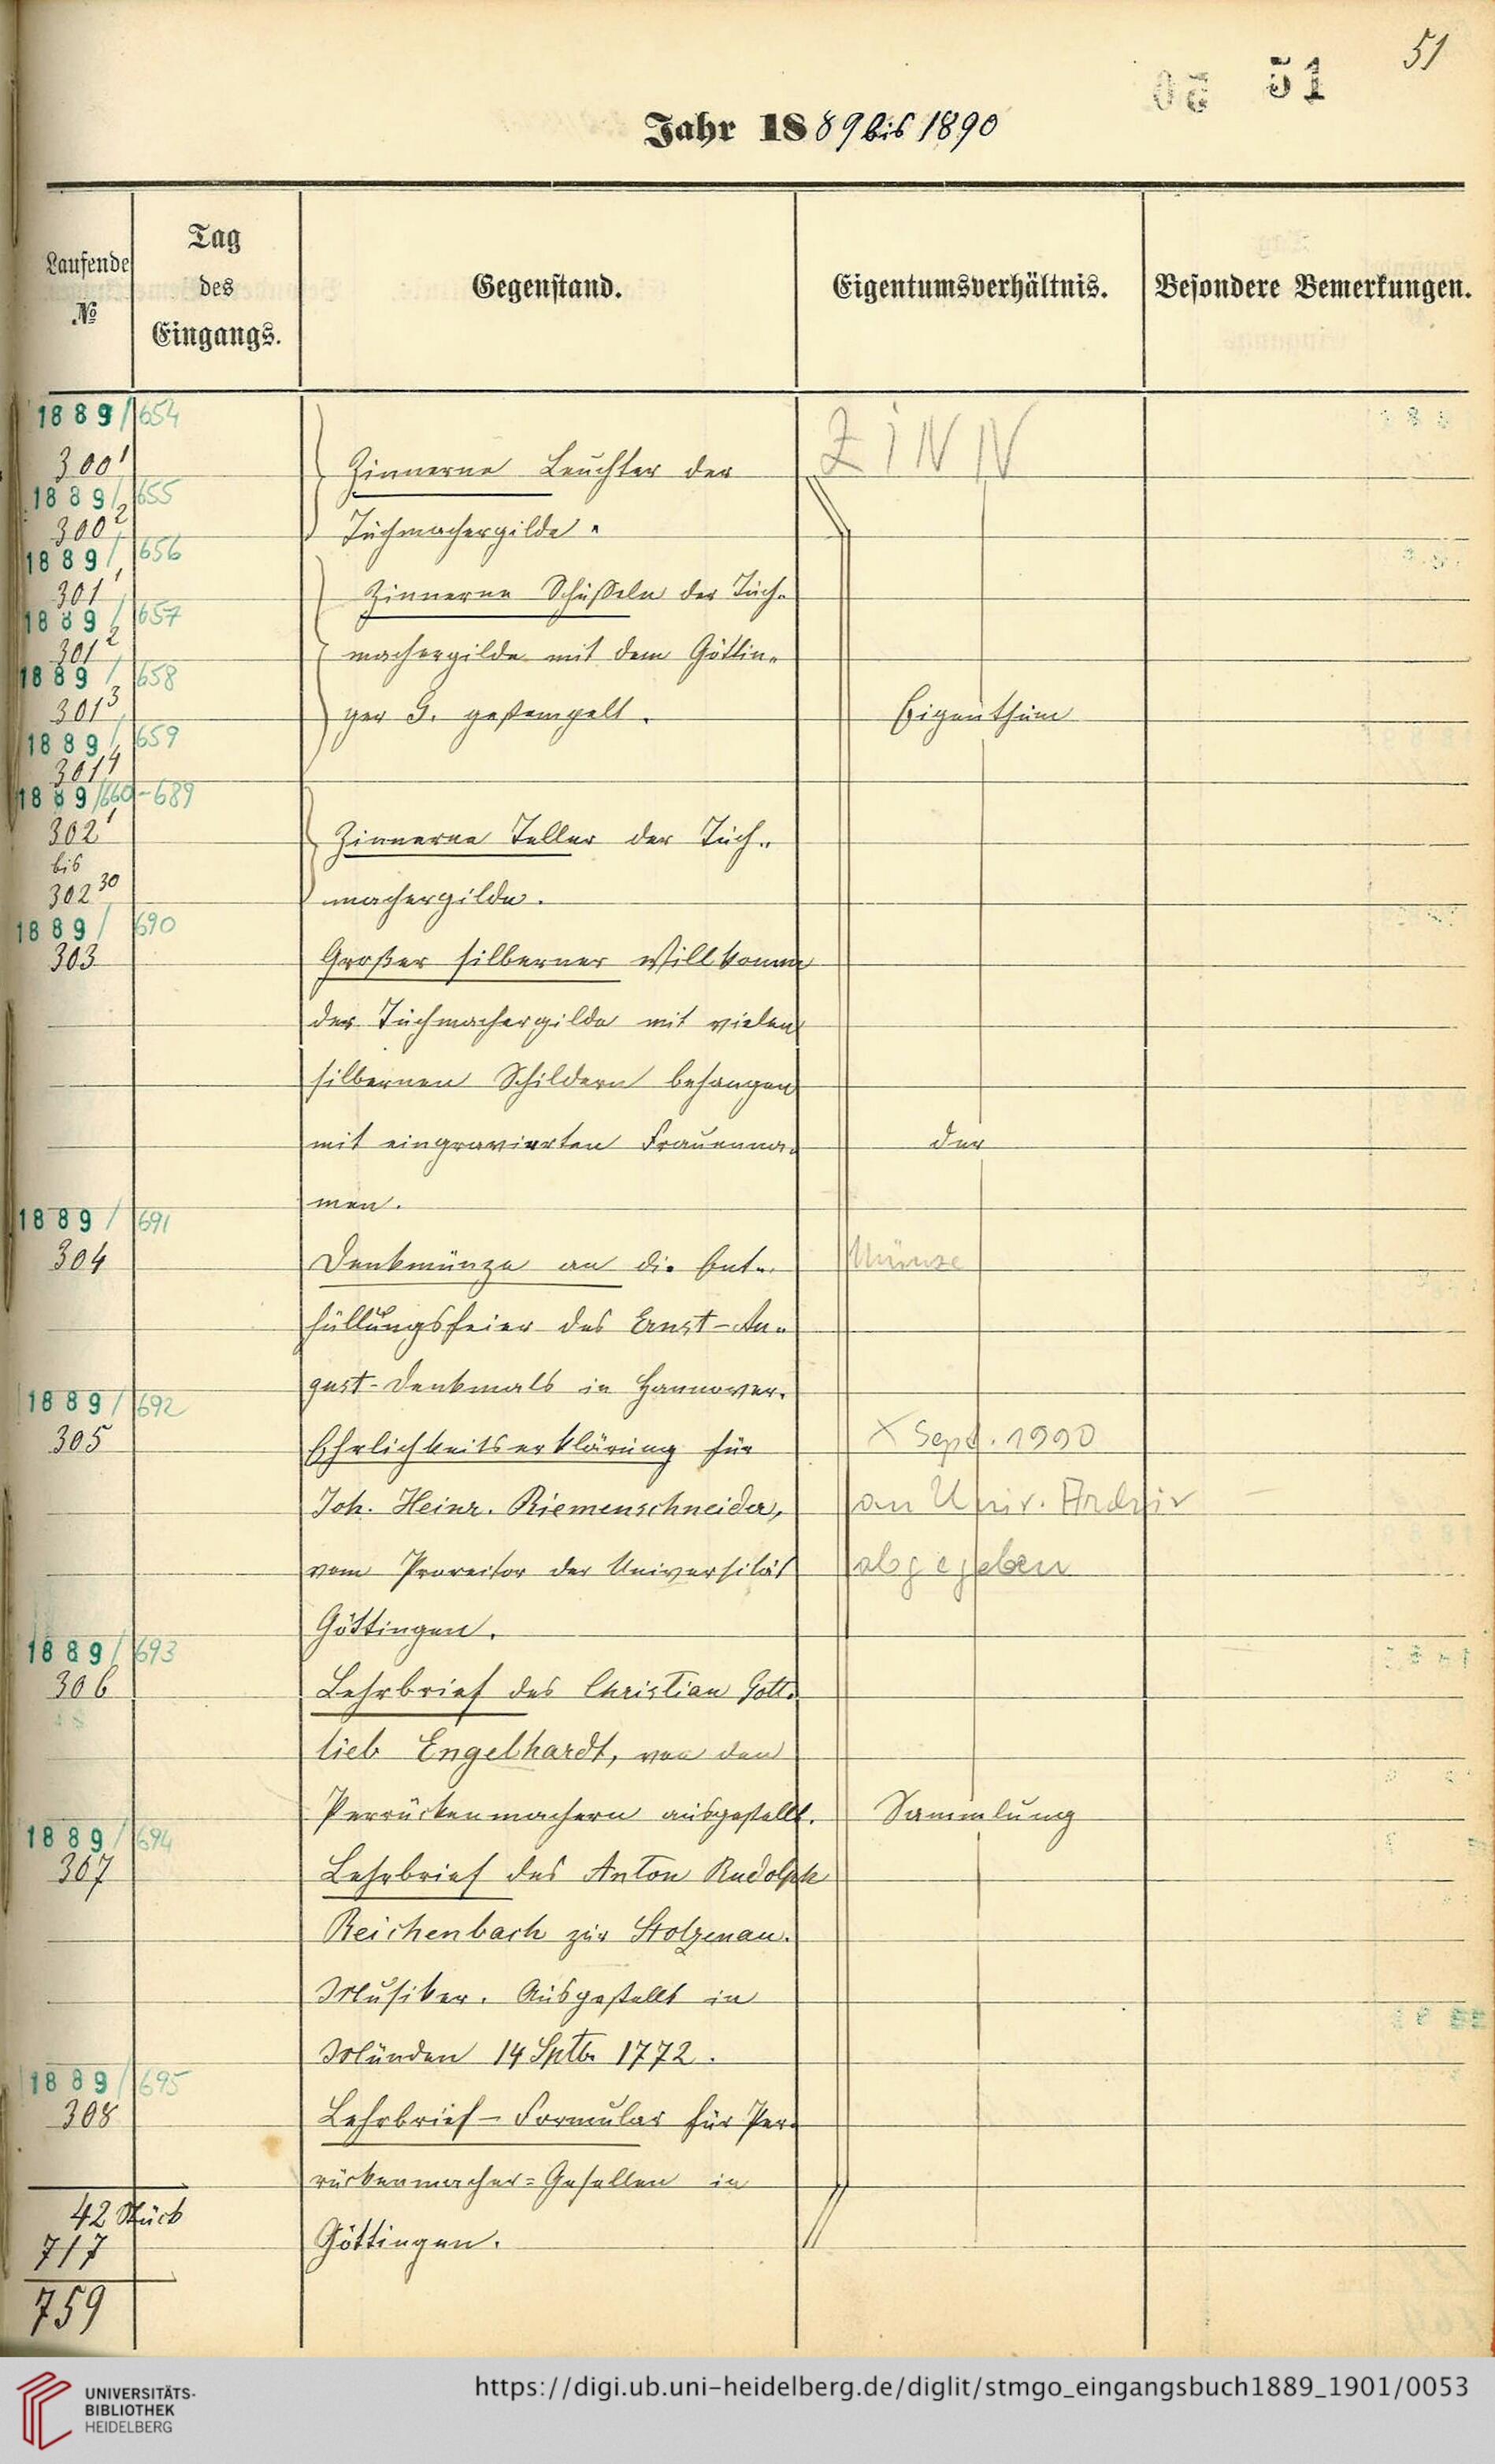 51
50 51
Jahr 1889 bis 1890
Laufende
№
Tag
des
Eingangs.
Gegenstand.
Eigentumsverhältnis.
Besondere Bemerkungen.
1889/654
300¹ Zinnerne Leuchter der ZINN
1889/655
300² Tuchmachergilde.
1889/656
301¹ Zinnerne Schüsseln der Tuch-
1889/657
301² machergilde mit dem Göttin-
1889/658
301³ ger G. gestempelt. Eigenthum
1889/659
301⁴
1889/660-689
302¹ Zinnerne Teller der Tuch-
bis
302³⁰ machergilde.
1889/690
303 Großer silberner Willkomm
der Tuchmachergilde mit vielen
silbernen Schildern behangen
mit eingravierten Frauenna- der
men.
1889/691
304 Denkmünze an die Ent- Münze
hüllungsfeier des Ernst-Au-
gust-Denkmals in Hannover.
1889/692
305 Ehrlichkeitserklärung für X Sept. 1990
Joh. Heinr. Riemenschneider, an Univ. Archiv
vom Prorector der Universität abgegeben
Göttingen.
1889/693
306 Lehrbrief des Christian Gott-
lieb Engelhardt, von den
Perrückenmachern ausgestellt. Sammlung
1889/694
307 Lehrbrief des Anton Rudolph
Reichenbach zur Stolzenau.
Musiker. Ausgestellt in
Münden 14 Sptb. 1772.
1889/695
308 Lehrbrief-Formular für Per-
rückenmacher-Gesellen in
42 Stück
Göttingen.
717
759
UNIVERSITÄTS-
BIBLIOTHEK
HEIDELBERG
https://digi.ub.uni-heidelberg.de/diglit/stmgo_eingangsbuch1889_1901/0053